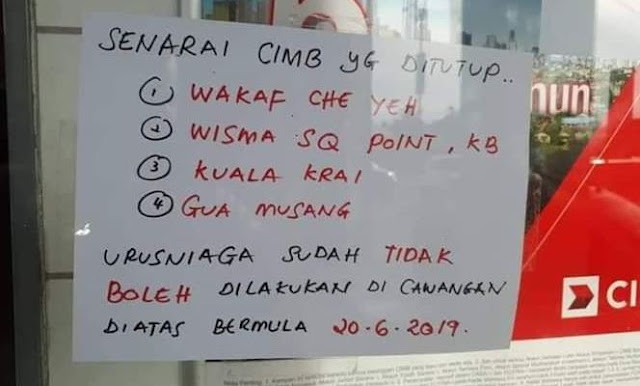 SENARAI CIMB YG DITUTUP..
1 WAKAF CHE YEH
2 WISMA SQ POINT, KB
3 KUALA KRAI
4 GUA MUSANG
URUSNIAGA SUDAH TIDAK
BOLEH DILAKUKAN DI CAWANGAN
DIATAS BERMULA 20-6-2019.
nun
CI